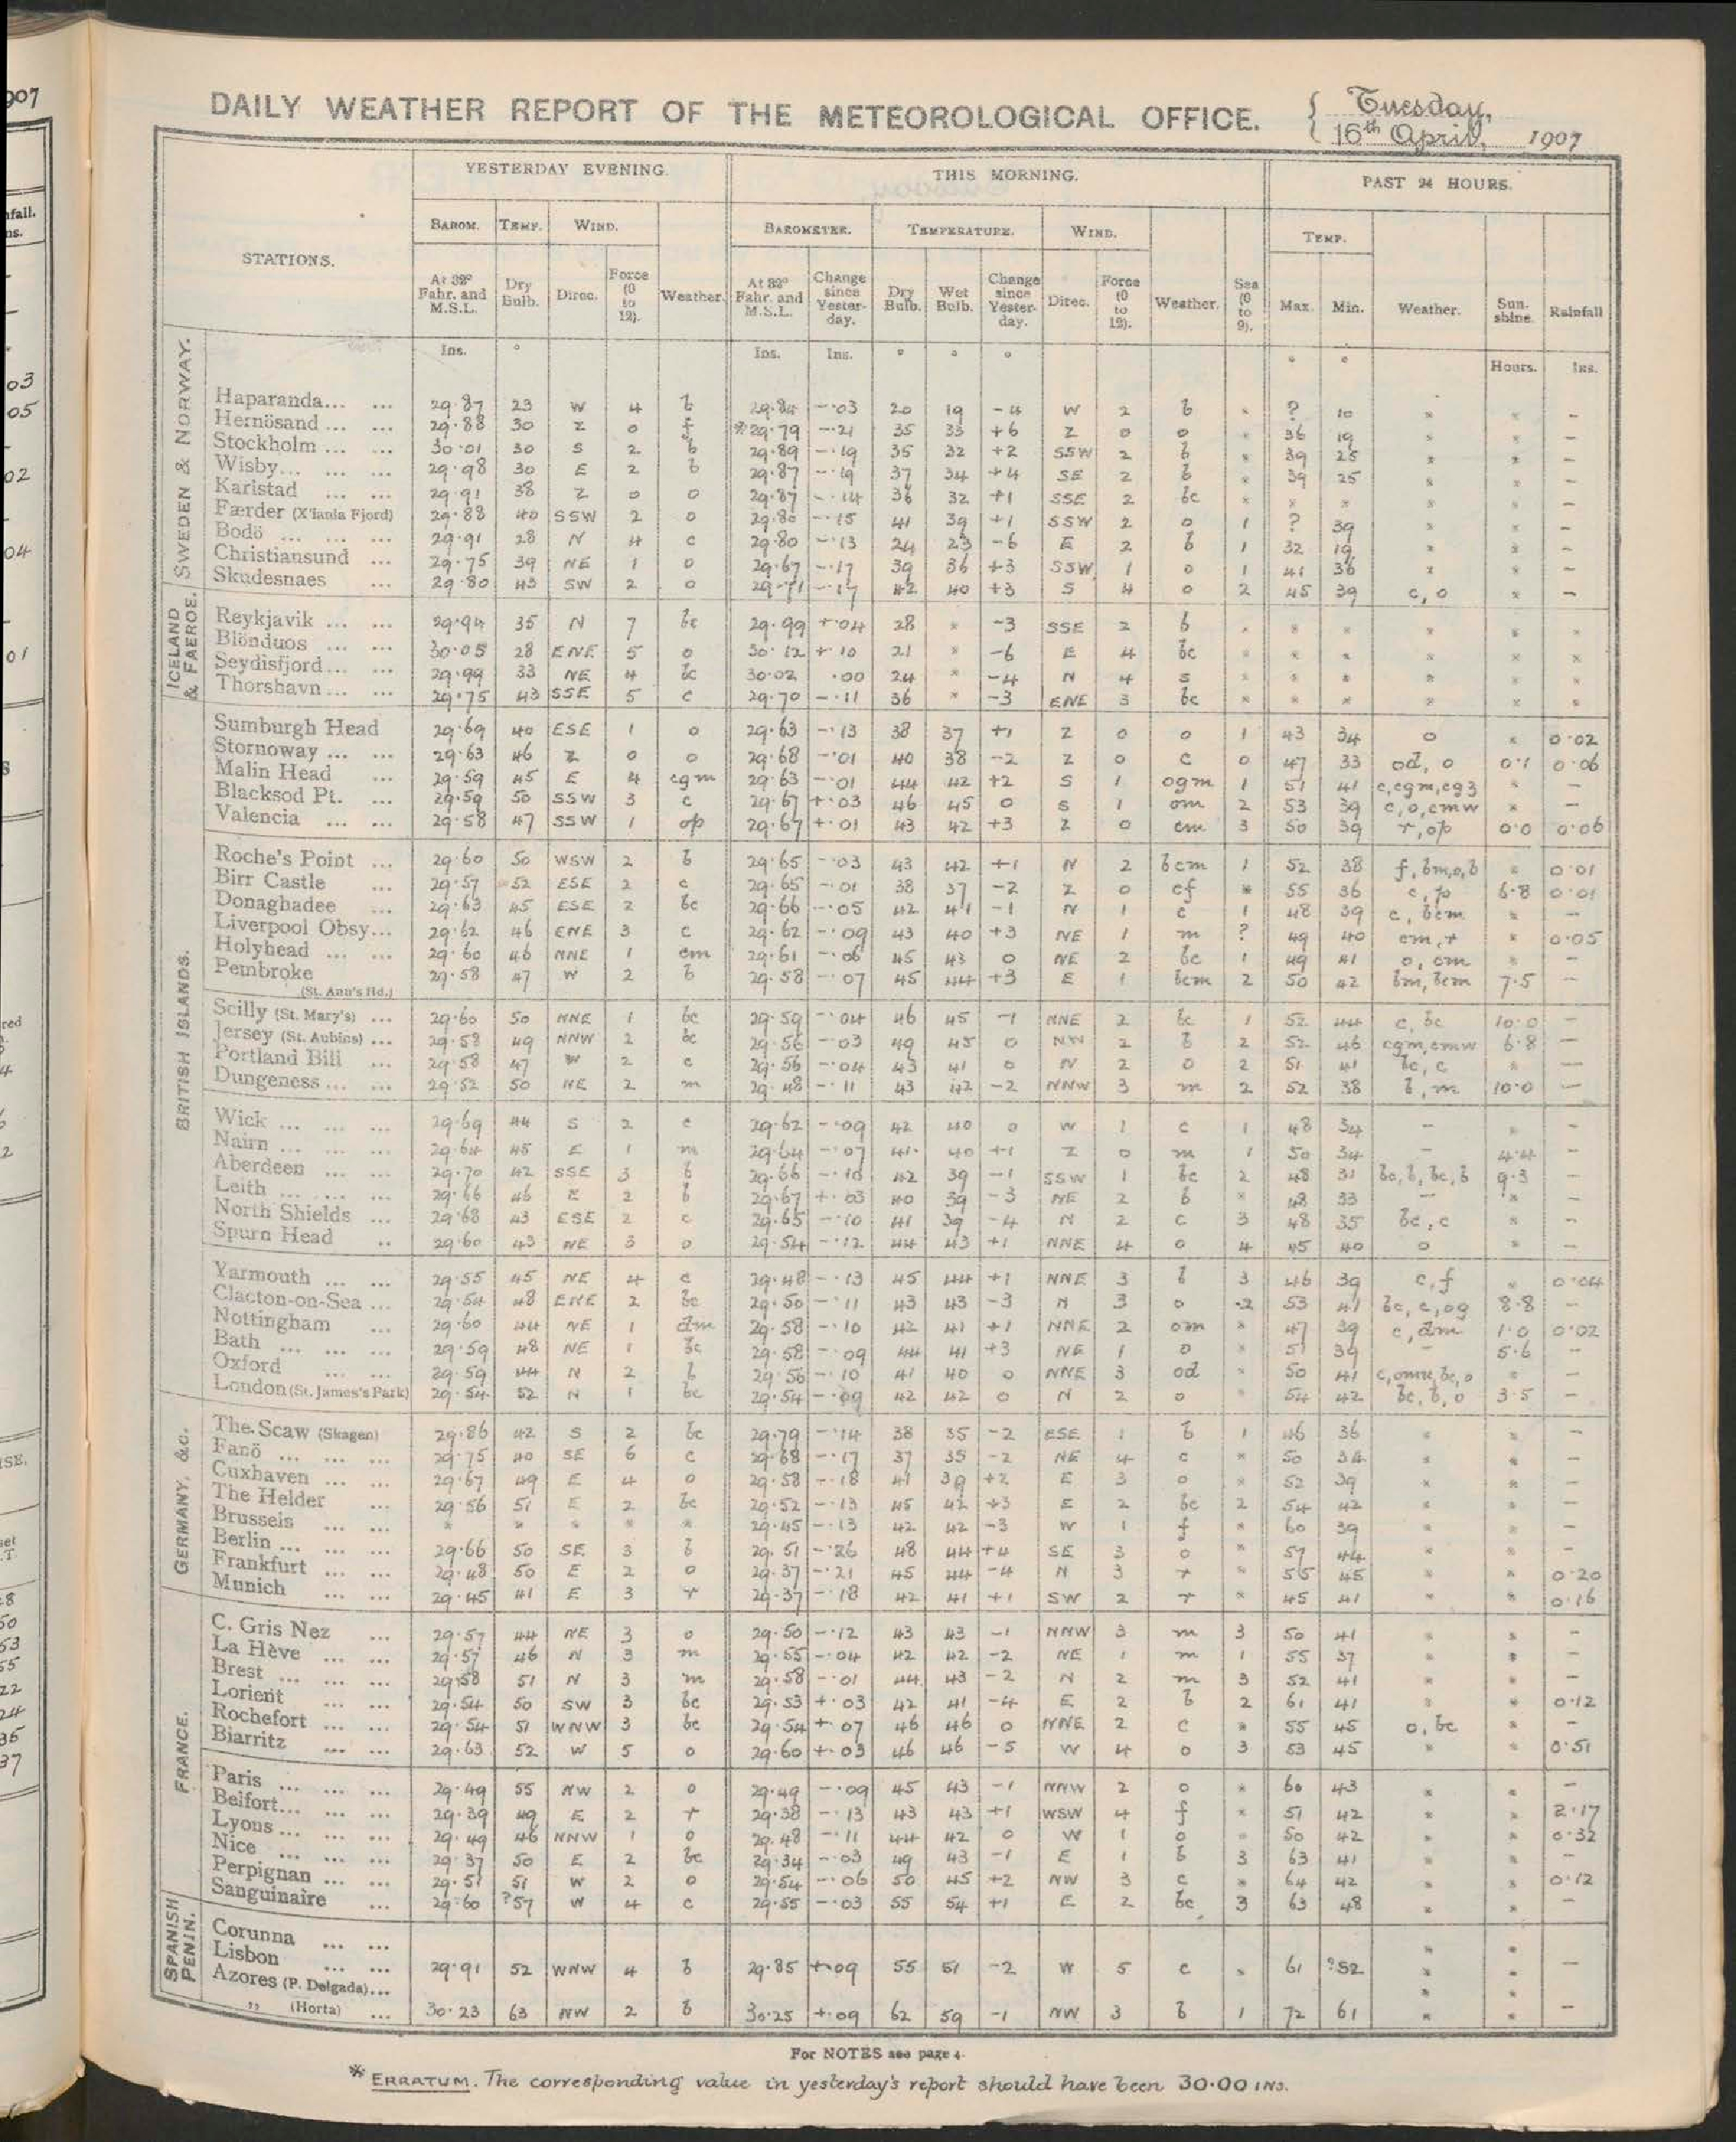 907
DAILY WEATHER REPORT OF THE METEOROLOGICAL OFFICE.
Tuesday,
16th April, 1907
YESTERDAY EVENING. THIS MORNING. PAST 24 HOURS.
STATIONS. BAROM. TEMP. WIND. Weather. BAROMETER. TEMPERATURE. WIND. Weather. Sea (0 to 9). TEMP. Weather. Sunshine. Rainfall
At 32° Fahr. and M.S.L. Dry Bulb. Direc. Force (0 to 12). At 32° Fahr. and M.S.L. Change since Yesterday. Dry Bulb. Wet Bulb. Change since Yesterday. Direc. Force (0 to 12). Max. Min.
Ins. ° Ins. Ins. ° ° ° ° ° Hours. Ins.
SWEDEN & NORWAY.
Haparanda... ... 29.87 23 W 4 b 29.84 -.03 20 19 -4 W 2 b * ? 10 * * -
Hernösand ... ... 29.88 30 Z 0 f *29.79 -.21 35 33 +6 Z 0 0 * 36 19 * * -
Stockholm ... ... 30.01 30 S 2 b 29.89 -.19 35 32 +2 SSW 2 b * 39 25 * * -
Wisby... ... ... 29.98 30 E 2 b 29.87 -.19 37 34 +4 SE 2 b * 39 25 * * -
Karlstad ... ... 29.91 38 Z 0 o 29.87 -.14 36 32 +1 SSE 2 bc * * * * * -
Færder (X'iania Fjord) 29.88 40 SSW 2 o 29.80 -.15 41 39 +1 SSW 2 o 1 ? 39 * * -
Bodö ... ... ... 29.91 28 N 4 c 29.80 -.13 24 23 -6 E 2 b 1 32 19 * * -
Christiansund ... 29.75 39 NE 1 o 29.67 -.17 39 36 +3 SSW 1 o 1 41 36 * * -
Skudesnaes ... 29.80 43 SW 2 o 29.71 -.17 42 40 +3 S 4 o 2 45 39 c, o * -
ICELAND & FAEROE.
Reykjavik ... ... 29.94 35 N 7 bc 29.99 +.04 28 * -3 SSE 2 b * * * * * *
Blönduos ... ... 30.05 28 ENE 5 o 30.12 +.10 21 * -6 E 4 bc * * * * * *
Seydisfjord... ... 29.99 33 NE 4 bc 30.02 .00 24 * -4 N 4 s * * * * * *
Thorshavn ... ... 29.75 43 SSE 5 c 29.70 -.11 36 * -3 ENE 3 bc * * * * * *
BRITISH ISLANDS.
Sumburgh Head 29.69 40 ESE 1 o 29.63 -.13 38 37 +1 Z 0 o 1 43 34 o * 0.02
Stornoway ... ... 29.63 46 Z 0 o 29.68 -.01 40 38 -2 Z 0 c 0 47 33 od, o 0.1 0.06
Malin Head ... 29.59 45 E 4 cgm 29.63 -.01 44 42 +2 S 1 ogm 1 51 41 c,cgm,cg3 * -
Blacksod Pt. ... 29.59 50 SSW 3 c 29.67 +.03 46 45 0 S 1 om 2 53 39 c,o,cmw * -
Valencia ... ... 29.58 47 SSW 1 op 29.67 +.01 43 42 +3 Z 0 cm 3 50 39 r,op 0.0 0.06
Roche's Point ... 29.60 50 WSW 2 b 29.65 -.03 43 42 +1 N 2 bcm 1 52 38 f,bm,o,b * 0.01
Birr Castle ... 29.57 52 ESE 2 c 29.65 -.01 38 37 -2 Z 0 cf * 55 36 c,p 6.8 0.01
Donaghadee ... 29.63 45 ESE 2 bc 29.66 -.05 42 41 -1 N 1 c 1 48 39 c, bcm * -
Liverpool Obsy... 29.62 46 ENE 3 c 29.62 -.09 43 40 +3 NE 1 m ? 49 40 cm,r * 0.05
Holyhead ... ... 29.60 46 NNE 1 cm 29.61 -.06 45 43 0 NE 2 bc 1 49 41 o, cm * -
Pembroke (St. Ann's Hd.) 29.58 47 W 2 b 29.58 -.07 45 44 +3 E 1 bcm 2 50 42 bm, bcm 7.5 -
Scilly (St. Mary's) ... 29.60 50 NNE 1 bc 29.59 -.04 46 45 -1 NNE 2 bc 1 52 44 c, bc 10.0 -
Jersey (St. Aubins) ... 29.58 49 NNW 2 bc 29.56 -.03 49 45 0 NW 2 b 2 52 46 cgm,cmw 6.8 -
Portland Bill ... 29.58 47 W 2 c 29.56 -.04 43 41 0 N 2 o 2 51 41 bc, c * -
Dungeness ... ... 29.52 50 NE 2 m 29.48 -.11 43 42 -2 NNW 3 m 2 52 38 b, m 10.0 -
Wick ... ... ... 29.69 44 S 2 c 29.62 -.09 42 40 0 W 1 c 1 48 34 - * -
Nairn ... ... ... 29.64 45 E 1 m 29.64 -.07 41 40 +1 Z 0 m 1 50 34 - 4.4 -
Aberdeen ... ... 29.70 42 SSE 3 b 29.66 -.10 42 39 -1 SSW 1 bc 2 48 31 bc,b,bc,b 9.3 -
Leith ... ... ... 29.66 46 E 2 b 29.67 +.03 40 39 -3 NE 2 b * 48 33 - * -
North Shields ... 29.68 43 ESE 2 c 29.65 -.10 41 39 -4 N 2 c 3 48 35 bc,c * -
Spurn Head .. 29.60 43 NE 3 o 29.54 -.12 44 43 +1 NNE 4 o 4 45 40 o * -
Yarmouth ... ... 29.55 45 NE 4 c 29.48 -.13 45 44 +1 NNE 3 b 3 46 39 c,f * 0.04
Clacton-on-Sea ... 29.54 48 ENE 2 bc 29.50 -.11 43 43 -3 N 3 o 2 53 41 bc,c,og 8.8 -
Nottingham ... 29.60 44 NE 1 dm 29.58 -.10 42 41 +1 NNE 2 om * 47 39 c,dm 1.0 0.02
Bath ... ... ... 29.59 48 NE 1 bc 29.58 -.09 44 41 +3 NE 1 o * 51 39 - 5.6 -
Oxford ... ... 29.59 44 N 2 b 29.56 -.10 41 40 0 NNE 3 od * 50 41 c,omu,bc,o * -
London (St. James's Park) 29.54 52 N 1 bc 29.54 -.09 42 42 0 N 2 o * 54 42 bc,b,o 3.5 -
GERMANY, &c.
The Scaw (Skagen) 29.86 42 S 2 bc 29.79 -.14 38 35 -2 ESE 1 b 1 46 36 * * -
Fanö ... ... ... 29.75 40 SE 6 c 29.68 -.17 37 35 -2 NE 4 c * 50 34 * * -
Cuxhaven ... ... 29.67 49 E 4 o 29.58 -.18 41 39 +2 E 3 o * 52 39 * * -
The Helder ... 29.56 51 E 2 bc 29.52 -.13 45 42 +3 E 2 bc 2 54 42 * * -
Brussels ... ... * * * * * 29.45 -.13 42 42 -3 W 1 f * 60 39 * * -
Berlin ... ... ... 29.66 50 SE 3 b 29.51 -.26 48 44 +4 SE 3 o * 57 44 * * -
Frankfurt ... ... 29.48 50 E 2 o 29.37 -.21 45 44 -4 N 3 r * 55 45 * * 0.20
Munich ... ... 29.45 41 E 3 r 29.37 -.18 42 41 +1 SW 2 r * 45 41 * * 0.16
FRANCE.
C. Gris Nez ... 29.57 44 NE 3 o 29.50 -.12 43 43 -1 NNW 3 m 3 50 41 * * -
La Hève ... ... 29.57 46 N 3 m 29.55 -.04 42 42 -2 NE 1 m 1 55 37 * * -
Brest ... ... ... 29.58 51 N 3 m 29.58 -.01 44 43 -2 N 2 m 3 52 41 * * -
Lorient ... ... 29.54 50 SW 3 bc 29.53 +.03 42 41 -4 E 2 b 2 61 41 * * 0.12
Rochefort ... ... 29.54 51 WNW 3 bc 29.54 +.07 46 46 0 NNE 2 c * 55 45 o, bc * -
Biarritz ... ... 29.63 52 W 5 o 29.60 +.03 46 46 -5 W 4 o 3 53 45 * * 0.51
Paris ... ... ... 29.49 55 NW 2 o 29.49 -.09 45 43 -1 NNW 2 o * 60 43 * * -
Belfort... ... ... 29.39 49 E 2 r 29.38 -.13 43 43 +1 WSW 4 f * 51 42 * * 2.17
Lyons ... ... ... 29.49 46 NNW 1 o 29.48 -.11 44 42 0 W 1 o * 50 42 * * 0.32
Nice ... ... ... 29.37 50 E 2 bc 29.34 -.03 49 43 -1 E 1 b 3 63 41 * * -
Perpignan ... ... 29.51 51 W 2 o 29.54 -.06 50 45 +2 NW 3 c * 64 42 * * 0.12
Sanguinaire ... 29.60 ?57 W 4 c 29.55 -.03 55 54 +1 E 2 bc 3 63 48 * * -
SPANISH PENIN.
Corunna ... ... * *
Lisbon ... ... 29.91 52 WNW 4 b 29.85 +.09 55 51 -2 W 5 c * 61 ?52 * * -
Azores (P. Delgada)... * *
" (Horta) ... 30.23 63 NW 2 b 30.25 +.09 62 59 -1 NW 3 b 1 72 61 * * -
For NOTES see page 4.
* ERRATUM. The corresponding value in yesterday's report should have been 30.00 INS.